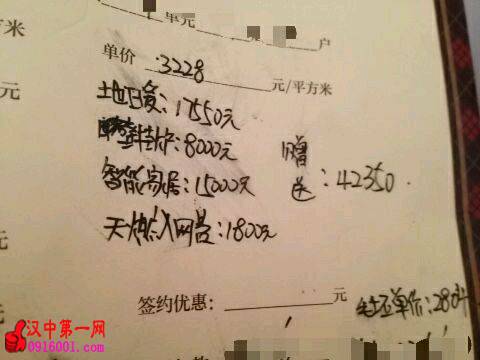 单元 户
米
单价 3228 元/平方米
元
土地日爱：17550元
挂炉：8000元
赠
智能家居：15000元
送：42350.
天然入网费：1800元
元
签约优惠： 元
毛坯单价：28
汉中第一网
0916001.com